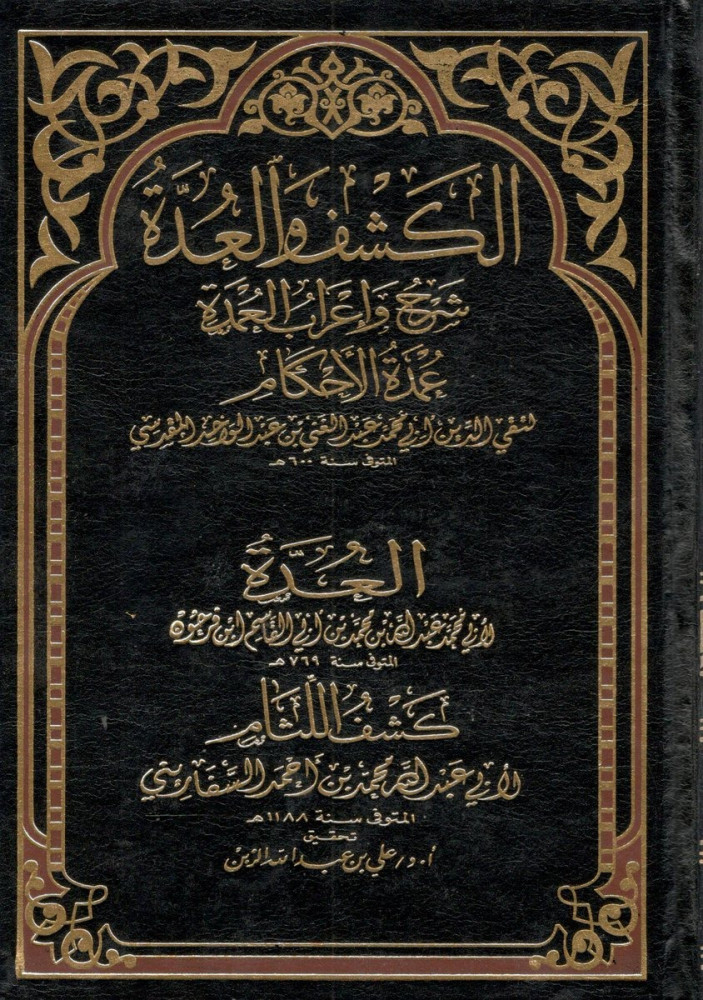 الكشف والعُدَّة
شَرحُ وَإعرَابُ العُمدَة
عُمْدَةُ الأَحْكَام
لتقي الدين أبي محمد عبد الغني بن عبد الواحد المقدسي
المتوفى سنة ٦٠٠ هـ
العُدَّةُ
لأبي محمد عبد الله بن محمد بن أبي القاسم ابن فرحون
المتوفى سنة ٧٦٩ هـ
كَشفُ اللِّثَام
لأبي عبد الله محمد بن أحمد السفاريني
المتوفى سنة ١١٨٨ هـ
تحقيق
أ. د/ علي بن عبد الله الزبن